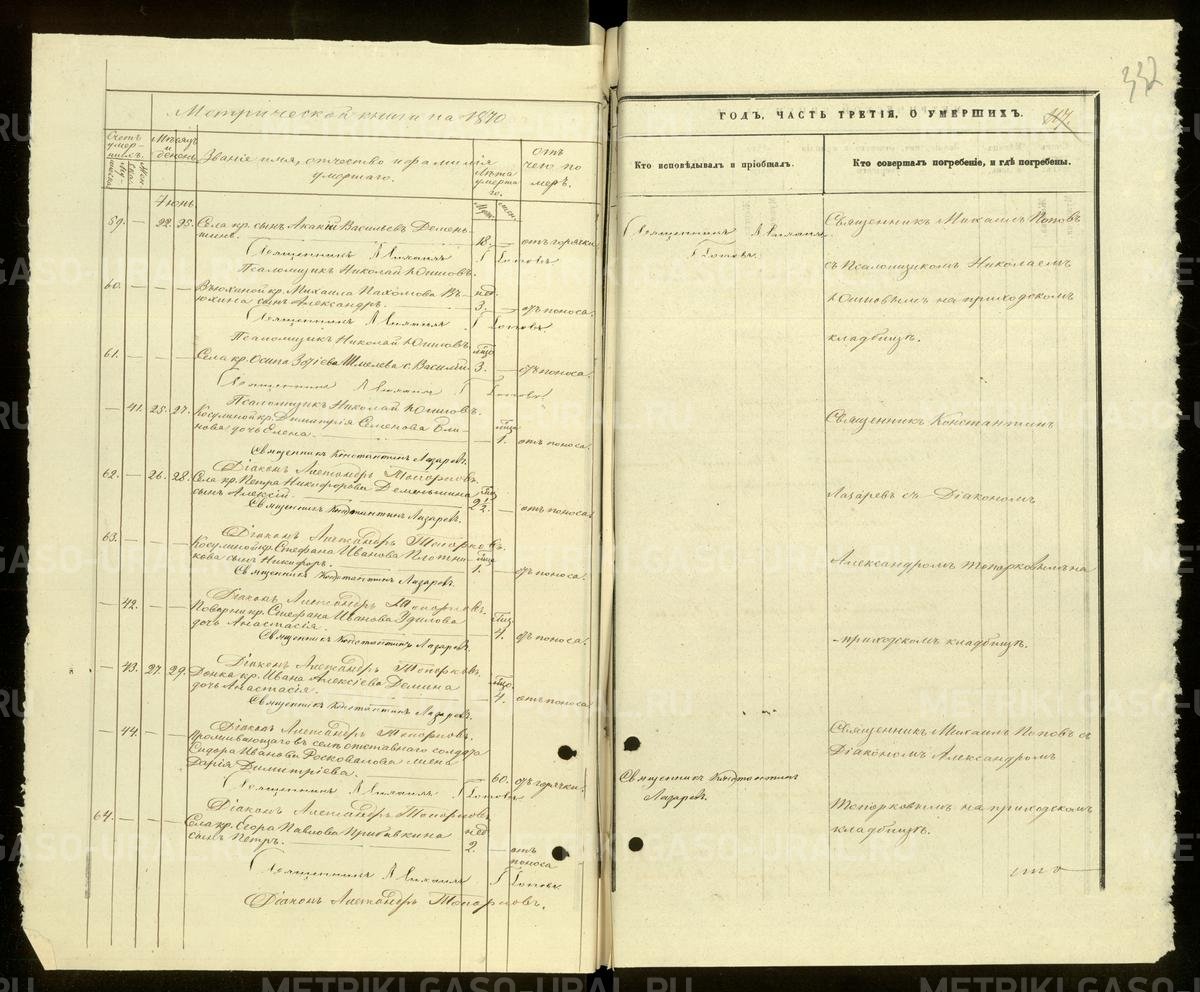 Метрической книги на 1870
Счетъ умер-
шихъ.
Мѣсяцъ
и
день
Званіе имя, отчество и фамилія
умершаго.
Лѣта
умерша
го.
Отъ
чего по
меръ.
Іюнь
59. — 22. 25. Села кр. сынъ Акакій Васильевъ Демень-
шинъ. 18. — отъ горячки
Священникъ Михаилъ Поповъ
Псаломщикъ Николай Юшновъ.
60. — — — Вьюхиной кр. Михаила Пахомова Вь- нед.
юхина сынъ Александръ. 3. — отъ поноса.
Священникъ Михаилъ Поповъ
Псаломщикъ Николай Юшновъ.
61. — — — Села кр. Осипа Зотіева Шмелева с. Василій 3. — отъ поноса.
Священникъ Михаилъ Поповъ
Псаломщикъ Николай Юшновъ.
— 41. 25. 27. Косулиной кр. Димитрія Семенова Бли-
нова дочь Елена. — 1. отъ поноса.
Священникъ Константинъ Лазаревъ.
Діаконъ Александръ Топорковъ.
62. — 26. 28. Села кр. Петра Никифорова Деменьшина
сынъ Алексій. 2½. — отъ поноса
Священникъ Константинъ Лазаревъ.
Діаконъ Александръ Топорковъ.
63. — — — Косулиной кр. Стефана Иванова Плотни-
кова сынъ Никифоръ. 1. — отъ поноса.
Священникъ Константинъ Лазаревъ.
Діаконъ Александръ Топорковъ.
— 42. — — кр. Стефана Иванова Удилова
дочь Анастасія. — 4. отъ поноса.
Священникъ Константинъ Лазаревъ.
Діаконъ Александръ Топорковъ.
— 43. 27. 29. кр. Ивана Алексіева Демина
дочь Анастасія. — 4. отъ поноса.
Священникъ Константинъ Лазаревъ.
Діаконъ Александръ Топорковъ.
— 44. — — Проживающаго въ селѣ отставнаго солдата
Сидора Иванова жена
Дарія Димитріева. 60. отъ горячки.
Священникъ Михаилъ Поповъ
Діаконъ Александръ Топорковъ
64. — — — Села кр. Егора Павлова Прибавкина нед
сынъ Петръ. 2. — отъ
поноса
Священникъ Михаилъ Поповъ
Діаконъ Александръ Топорковъ.
332
ГОДЪ, ЧАСТЬ ТРЕТІЯ, О УМЕРШИХЪ. 117.
Кто исповѣдывалъ и пріобщалъ.
Кто совершалъ погребеніе, и гдѣ погребены.
Священникъ Михаилъ
Поповъ
Священникъ Михаилъ Поповъ
съ Псаломщикомъ Николаемъ
Юшновымъ на приходскомъ
кладбищѣ.
Священникъ Константинъ
Лазаревъ съ Діакономъ
Александромъ Топорковымъ на
приходскомъ кладбищѣ.
Священникъ Константинъ
Лазаревъ.
Священникъ Михаилъ Поповъ съ
Діакономъ Александромъ
Топорковымъ на приходскомъ
кладбищѣ.
METRIKI.GASO-URAL.RU